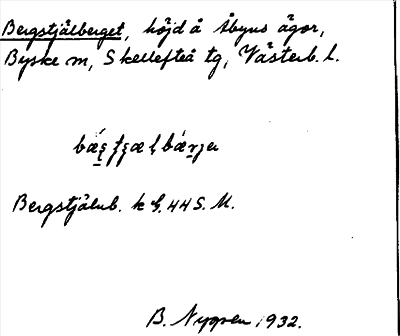 Bergstjälberget, höjd å Åbyns ägor,
Byske sn, Skellefteå tg, Västerb. l.
Bergstjälnb. k bl. 44 S. M.
B. Nygren 1932.